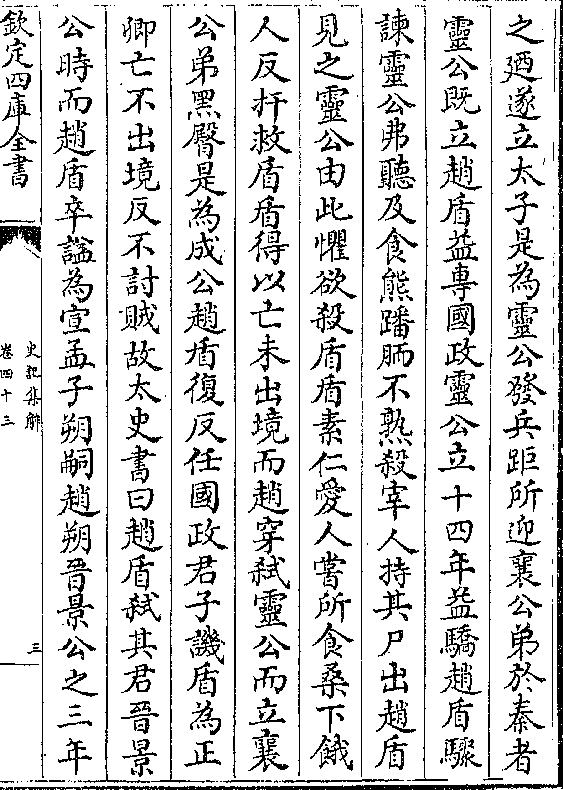 之廼遂立太子是為靈公發兵距所迎襄公弟於秦者
靈公既立趙盾益專國政靈公立十四年益驕趙盾驟
諫靈公弗聽及食熊蹯胹不熟殺宰人持其尸出趙盾
見之靈公由此懼欲殺盾盾素仁愛人嘗所食桑下餓
人反扞救盾盾得以亡未出境而趙穿弑靈公而立襄
公弟黑臀是為成公趙盾復反任國政君子譏盾為正
卿亡不出境反不討賊故太史書曰趙盾弑其君晉景
公時而趙盾卒諡為宣孟子朔嗣趙朔晉景公之三年
欽定四庫全書
史記集解
卷四十三
三